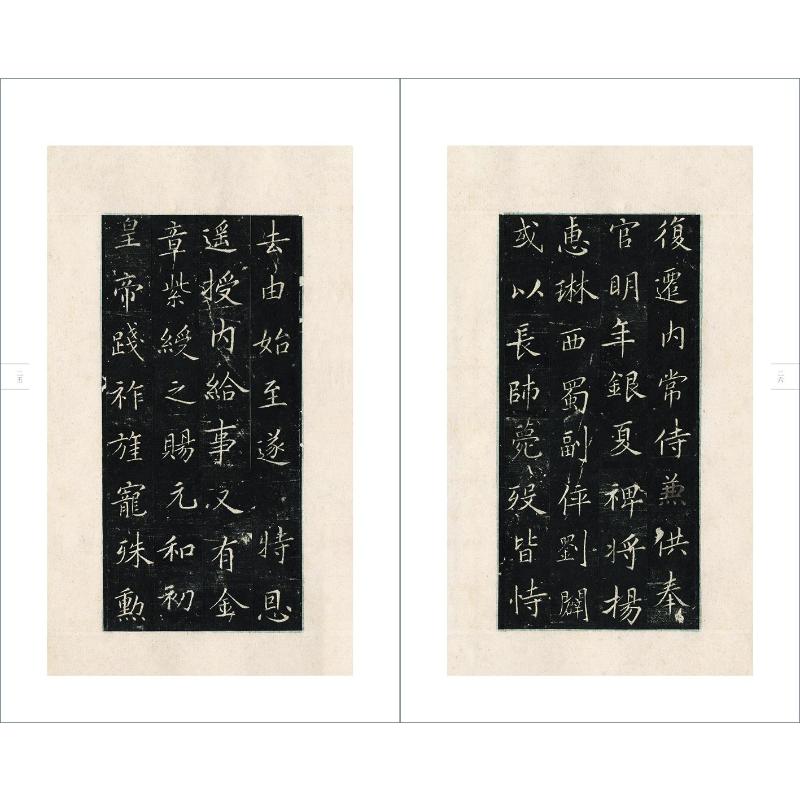 去由始至遂 特恩
遥授内給事又有金
章紫綬之賜元和初
皇帝踐祚旌寵殊勳
二五
復遷内常侍兼供奉
官明年銀夏裨將揚
惠琳西蜀副倅劉闢
或以長帥薨歿皆恃
二六